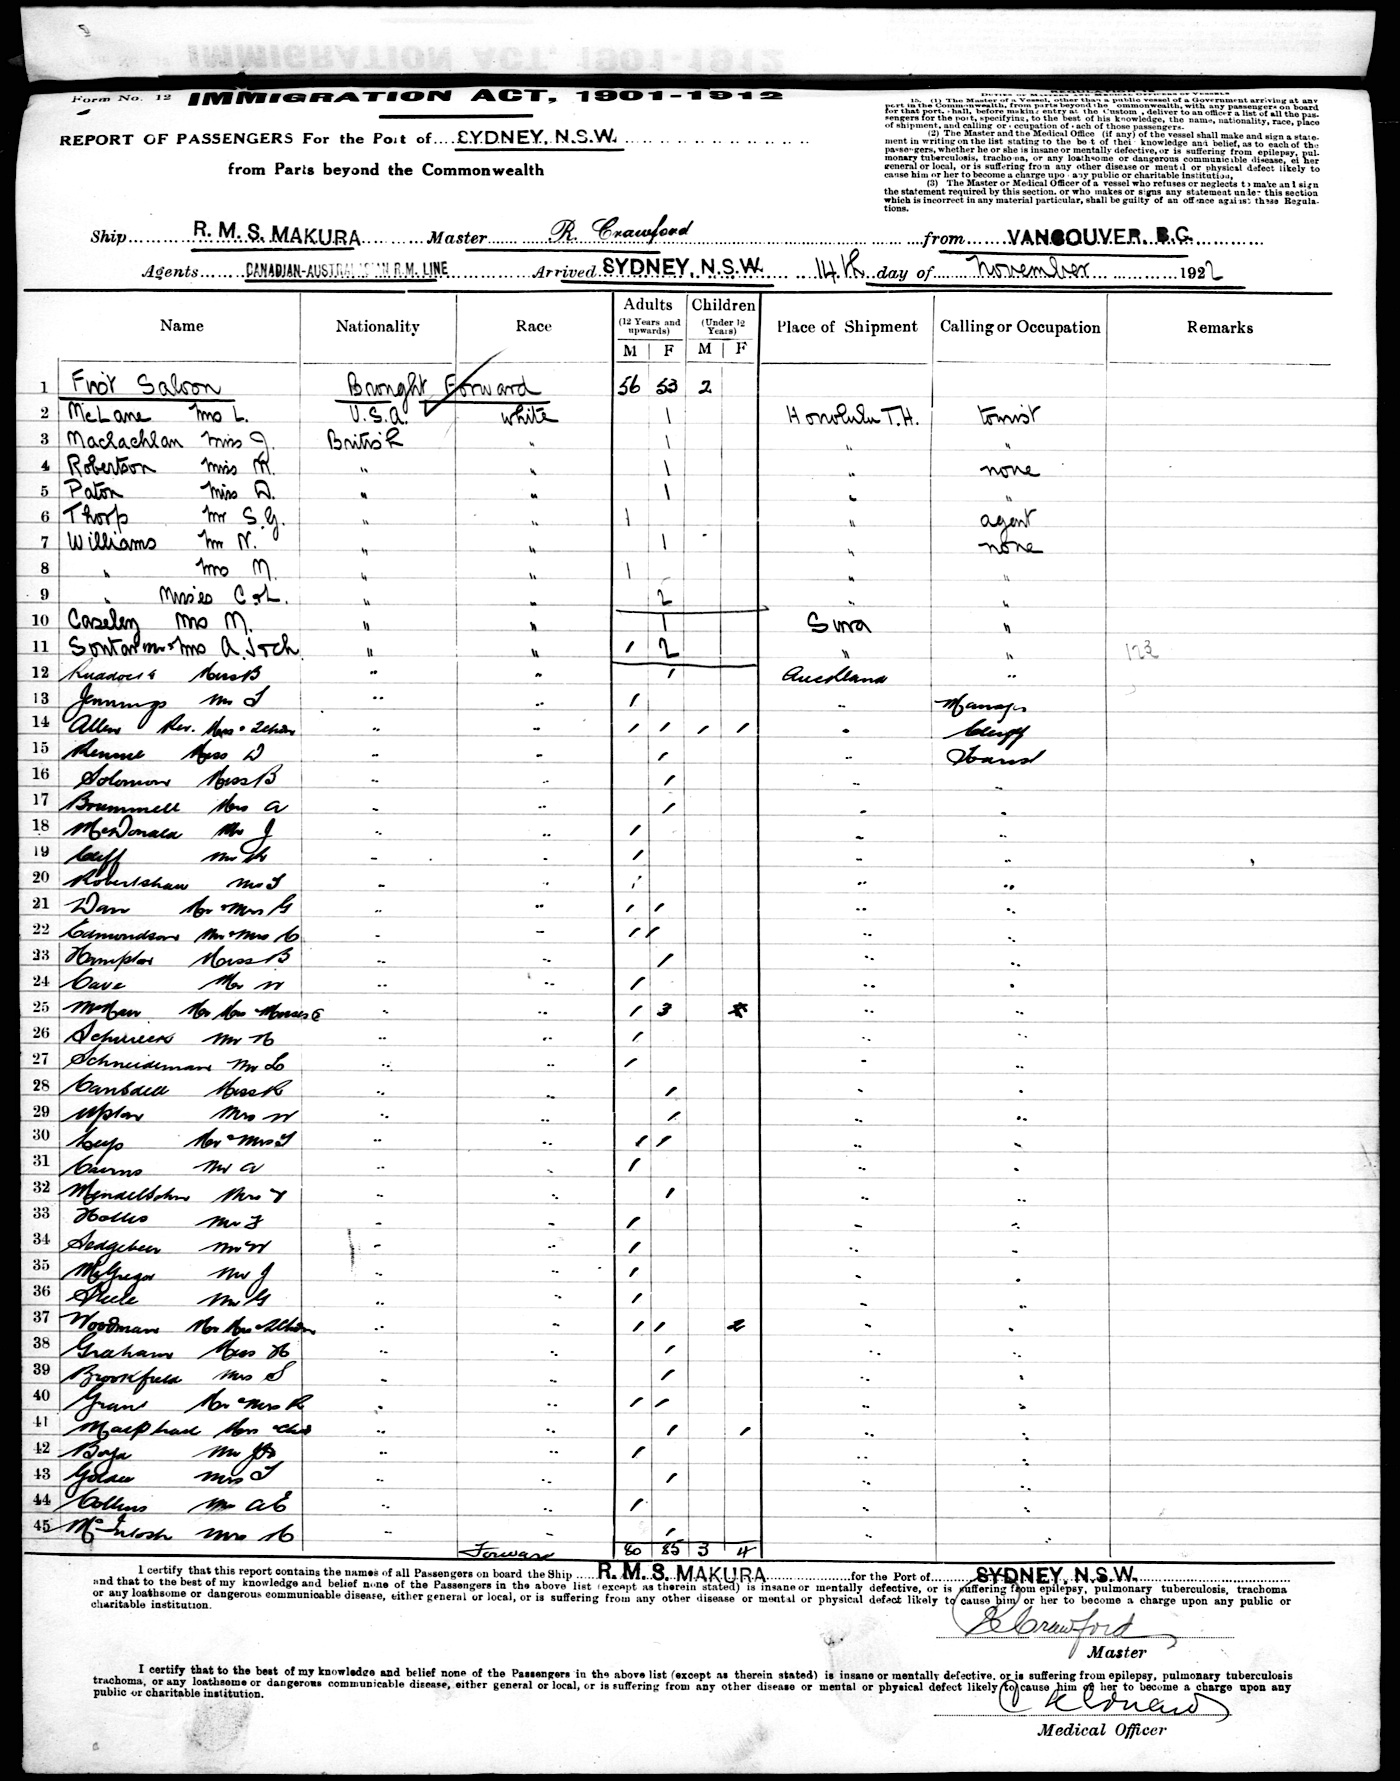 Form No. 12 IMMIGRATION ACT, 1901-1912
REPORT OF PASSENGERS For the Port of SYDNEY, N.S.W.
from Parts beyond the Commonwealth
15. (1) The Master of a Vessel, other than a public vessel of a Government arriving at any
port in the Commonwealth, from parts beyond the Commonwealth, with any passengers on board
for that port, shall, before making entry at the Customs, deliver to an officer a list of all the pas-
sengers for the port, specifying, to the best of his knowledge, the name, nationality, race, place
of shipment, and calling or occupation of each of those passengers.
(2) The Master and the Medical Office (if any) of the vessel shall make and sign a state-
ment in writing on the list stating to the best of their knowledge and belief, as to each of the
passengers, whether he or she is insane or mentally defective, or is suffering from epilepsy, pul-
monary tuberculosis, trachoma, or any loathsome or dangerous communicable disease, either
general or local, or is suffering from any other disease or mental or physical defect likely to
cause him or her to become a charge upon any public or charitable institution.
(3) The Master or Medical Officer of a vessel who refuses or neglects to make and sign
the statement required by this section, or who makes or signs any statement under this section
which is incorrect in any material particular, shall be guilty of an offence against these Regula-
tions.
Ship R. M. S. MAKURA Master R. Crawford from VANCOUVER. B.C.
Agents CANADIAN-AUSTRALASIAN R.M. LINE Arrived SYDNEY, N.S.W. 14th day of November 1922
Name Nationality Race Adults (12 Years and upwards) M F Children (Under 12 Years) M F Place of Shipment Calling or Occupation Remarks
1 First Saloon Brought Forward 56 53 2
2 McLane Mrs L. U.S.A. White 1 Honolulu T.H. tourist
3 Maclachlan Miss J. British " 1 " "
4 Robertson Miss K. " " 1 " none
5 Paton Miss D. " " 1 " "
6 Thorp Mr S.G. " " 1 " agent
7 Williams Mr N. " " 1 " none
8 " Mrs M. " " 1 " "
9 " Misses C & L. " " 2 " "
10 Caseley Mrs M. " " 1 Suva "
11 Mr & Mrs A. " " 1 2 " " 123
12 Miss B " " 1 Auckland "
13 Jennings Mr " " 1 " Manager
14 Allen Rev. Mrs & 2 chdn " " 1 1 1 1 " Clergy
15 Rennie Miss D " " 1 " Tourist
16 Solomon Miss B " " 1 " "
17 Brummell Mrs A " " 1 " "
18 McDonald Mr J " " 1 " "
19 Cliff Mr " " 1 " "
20 Robertshaw Mr " " 1 " "
21 Mr & Mrs G " " 1 1 " "
22 Edmondson Mr & Mrs C " " 1 1 " "
23 Hampton Miss B " " 1 " "
24 Cave Mr W " " 1 " "
25 Mr Mrs & Misses " " 1 3 " "
26 Mr H " " 1 " "
27 Schneideman Mr L " " 1 " "
28 Cansdell Miss R " " 1 " "
29 Upton Mrs W " " 1 " "
30 Mr & Mrs " " 1 1 " "
31 Cairns Mr A " " 1 " "
32 Mendelsohn Mrs " " 1 " "
33 Hollis Mr " " 1 " "
34 Sedgebeer Mr W " " 1 " "
35 McGregor Mr J " " 1 " "
36 Steele Mr G " " 1 " "
37 Woodman Mr Mrs & 2 Chdn " " 1 1 2 " "
38 Graham Miss H " " 1 " "
39 Brookfield Mrs S " " 1 " "
40 Grant Mr & Mrs R " " 1 1 " "
41 Macphail Mrs & chd " " 1 1 " "
42 Boyd Mr " " 1 " "
43 Mrs " " 1 " "
44 Collins Mr A E " " 1 " "
45 McIntosh Mrs H " " 1 " "
Forward 80 85 3 4
I certify that this report contains the names of all Passengers on board the Ship R. M. S. MAKURA for the Port of SYDNEY, N.S.W.
and that to the best of my knowledge and belief none of the Passengers in the above list (except as therein stated) is insane or mentally defective, or is suffering from epilepsy, pulmonary tuberculosis, trachoma
or any loathsome or dangerous communicable disease, either general or local, or is suffering from any other disease or mental or physical defect likely to cause him or her to become a charge upon any public or
charitable institution.
R Crawford
Master
I certify that to the best of my knowledge and belief none of the Passengers in the above list (except as therein stated) is insane or mentally defective, or is suffering from epilepsy, pulmonary tuberculosis
trachoma, or any loathsome or dangerous communicable disease, either general or local, or is suffering from any other disease or mental or physical defect likely to cause him or her to become a charge upon any
public or charitable institution.
Medical Officer